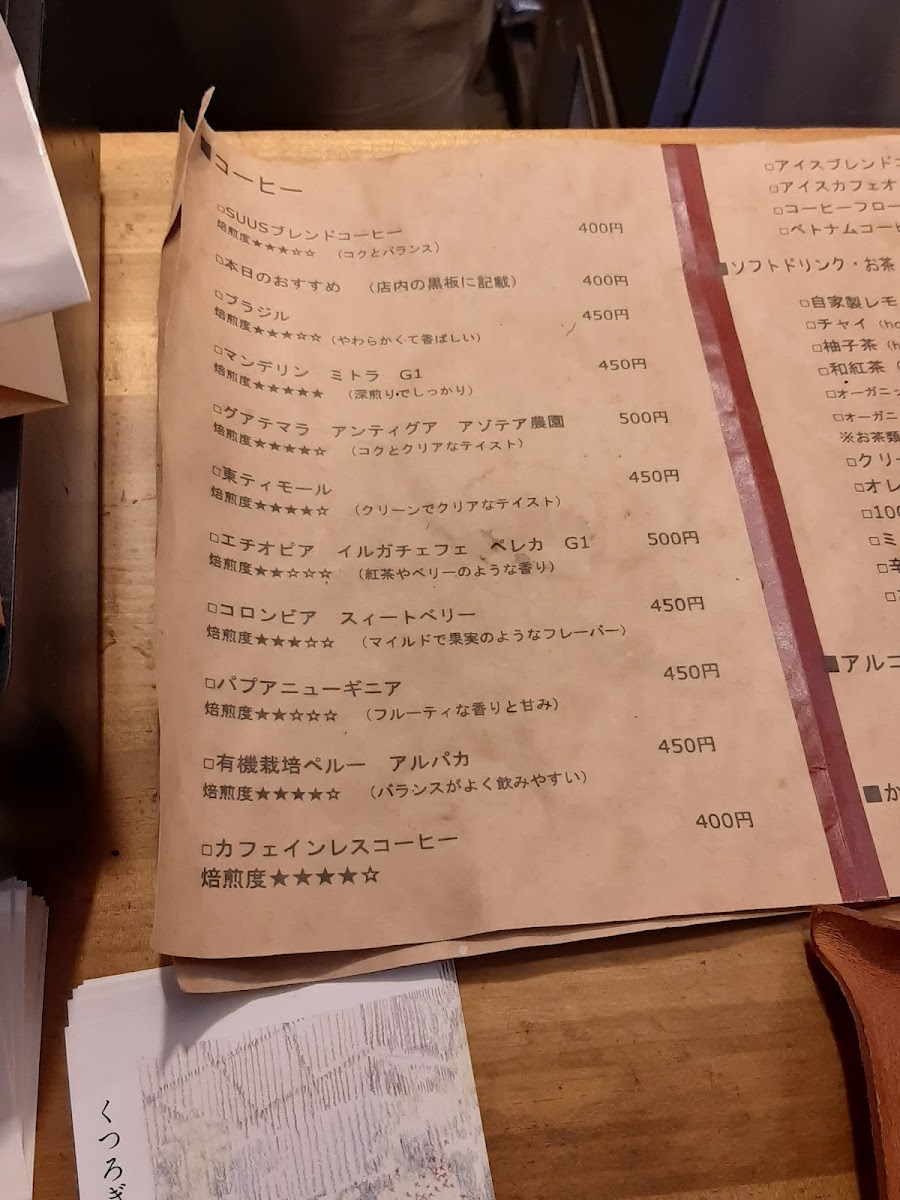 ■コーヒー
□SUUSブレンドコーヒー 400円
焙煎度★★★☆☆ （コクとバランス）
□本日のおすすめ （店内の黒板に記載） 400円
□ブラジル 450円
焙煎度★★★☆☆（やわらかくて香ばしい）
□マンデリン ミトラ G1 450円
焙煎度★★★★★ （深煎りでしっかり）
□グアテマラ アンティグア アゾテア農園 500円
焙煎度★★★★☆ （コクとクリアなテイスト）
□東ティモール 450円
焙煎度★★★★☆ （クリーンでクリアなテイスト）
□エチオピア イルガチェフェ ベレカ G1 500円
焙煎度★★☆☆☆ （紅茶やベリーのような香り）
□コロンビア スィートベリー 450円
焙煎度★★★☆☆ （マイルドで果実のようなフレーバー）
□パプアニューギニア 450円
焙煎度★★☆☆☆ （フルーティな香りと甘み）
□有機栽培ペルー アルパカ 450円
焙煎度★★★★☆ （バランスがよく飲みやすい）
□カフェインレスコーヒー 400円
焙煎度★★★★☆
□アイスブレンドコ
□アイスカフェオ
□コーヒーフロー
□ベトナムコーヒ
■ソフトドリンク・お茶
□自家製レモ
□チャイ（ho
□柚子茶（h
□和紅茶（
□オーガニッ
□オーガニ
※お茶類
□クリー
□オレ
□100
□ミ
□辛
■アルコ
■か
くつろぎ